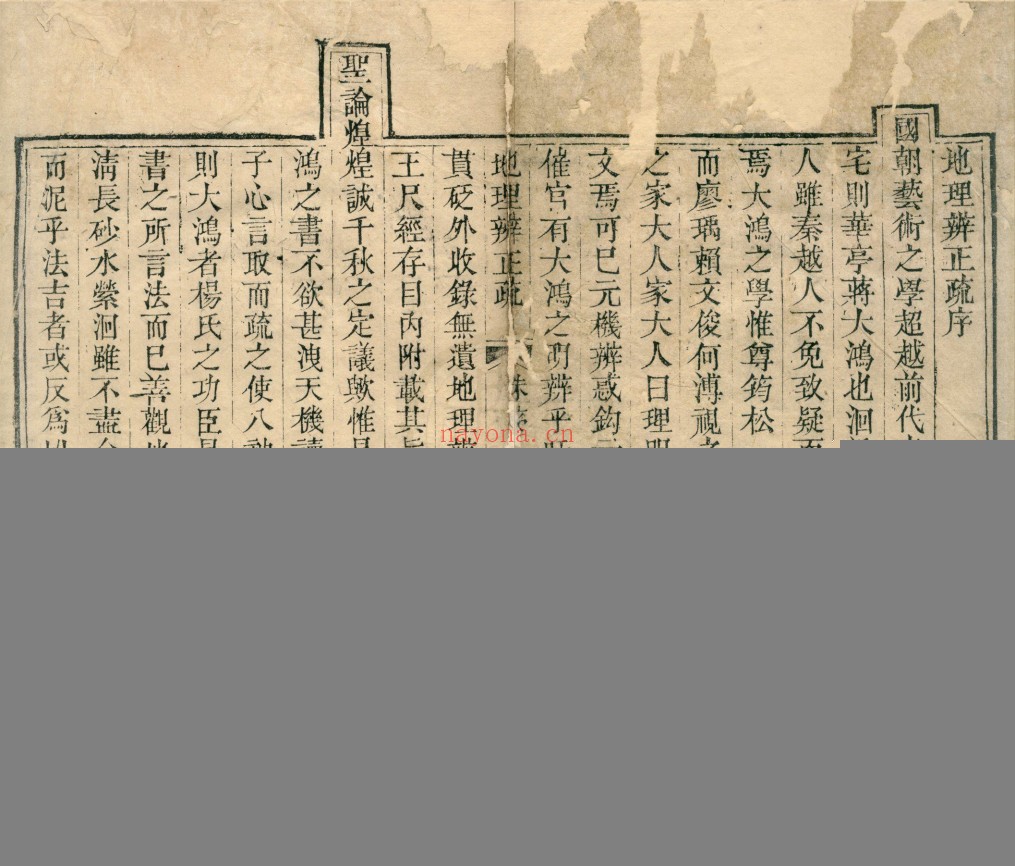 地理辨正疏序
國朝藝術之學超越前代
宅則華亭蔣大鴻也洄
人雖秦越人不免致疑
焉大鴻之學惟尊筠松
而廖瑀賴文俊何溥視
之家大人家大人曰理明
文焉可已元機辨惑鈎
催官有大鴻之明辨乎
地理辨正疏
貰砭外收錄無遺地理
王尺經存目内附載其
聖論煌煌誠千秋之定議歟惟
鴻之書不欲甚洩天機
子心言取而疏之使八
則大鴻者楊氏之功臣
書之所言法而已善觀
淸長砂水縈洄雖不盡
而泥乎法吉者或反爲凶
nayona.cn